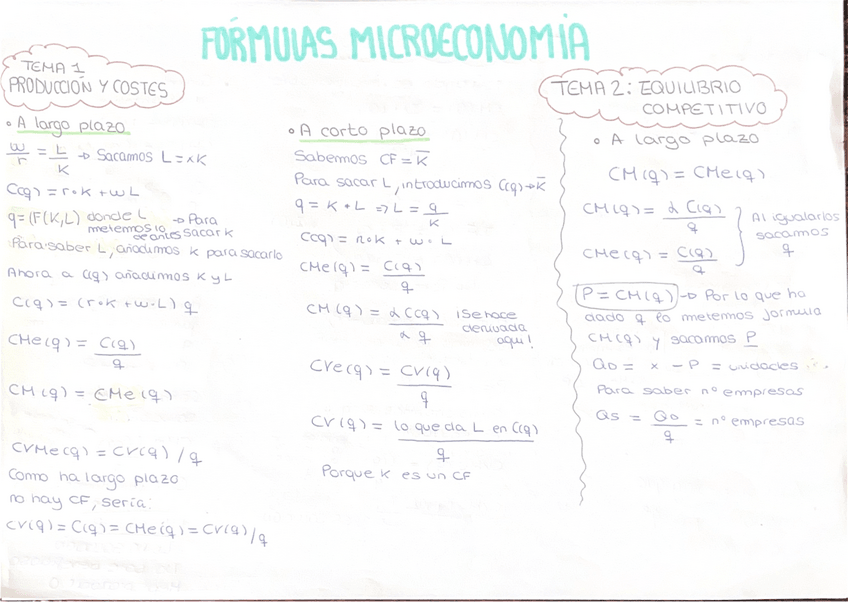 FÓRMULAS MICROECONOMÍA
TEMA 1
PRODUCCIÓN Y COSTES
• A largo plazo
w/r = L/K → Sacamos L = xK
C(q) = r·K + wL
q = (F(K,L) donde L → Para
metemos lo sacar K
de antes
Para saber L, añadimos K para sacarlo
Ahora a C(q) añadimos K y L
C(q) = (r·K + w·L) q
CMe(q) = C(q)/q
CM(q) = CMe(q)
CVMe(q) = CV(q)/q
Como ha largo plazo
no hay CF, sería:
CV(q) = C(q) = CMe(q) = CV(q)/q
• A corto plazo
Sabemos CF = K̅
Para sacar L, introducimos C(q) → K̅
q = K + L => L = q/K
C(q) = r·K + w·L
CMe(q) = C(q)/q
CM(q) = α C(q)/α q ¡Se hace
derivada
aquí!
CVe(q) = CV(q)/q
CV(q) = lo que da L en C(q)/q
Porque K es un CF
TEMA 2: EQUILIBRIO
COMPETITIVO
• A largo plazo
CM(q) = CMe(q)
CM(q) = α C(q)/q } Al igualarlos
CMe(q) = C(q)/q sacamos
q
P = CM(q) → Por lo que ha
dado q lo metemos formula
CM(q) y sacamos P
QD = x - P = unidades
Para saber nº empresas
QS = QD/q = nº empresas